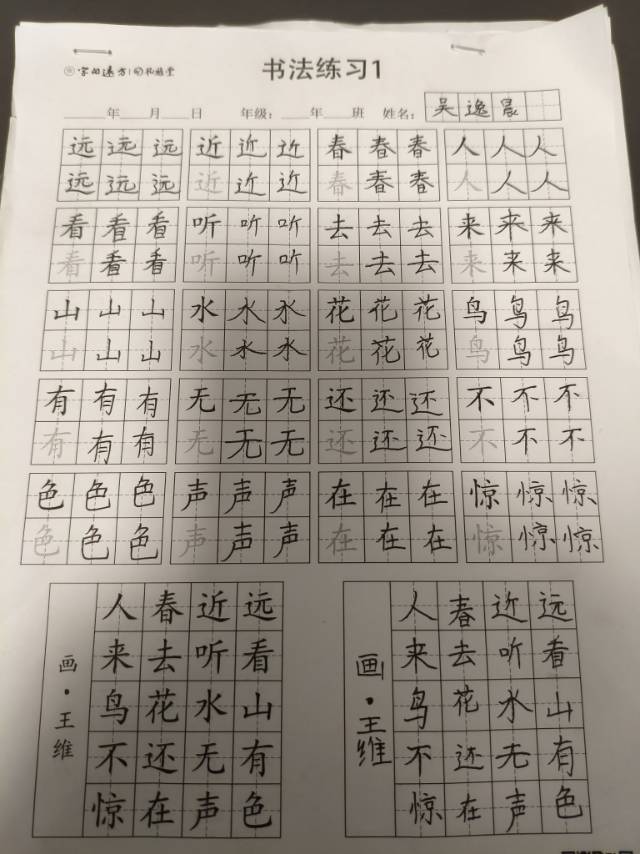 书法练习1
年 月 日 年级: 年 班 姓名: 吴逸晨
远远远 近近近 春春春 人人人
远远远 近近近 春春春 人人人
看看看 听听听 去去去 来来来
看看看 听听听 去去去 来来来
山山山 水水水 花花花 鸟鸟鸟
山山山 水水水 花花花 鸟鸟鸟
有有有 无无无 还还还 不不不
有有有 无无无 还还还 不不不
色色色 声声声 在在在 惊惊惊
色色色 声声声 在在在 惊惊惊
远看山有色
近听水无声
春去花还在
人来鸟不惊
画·王维
远看山有色
近听水无声
春去花还在
人来鸟不惊
画·王维